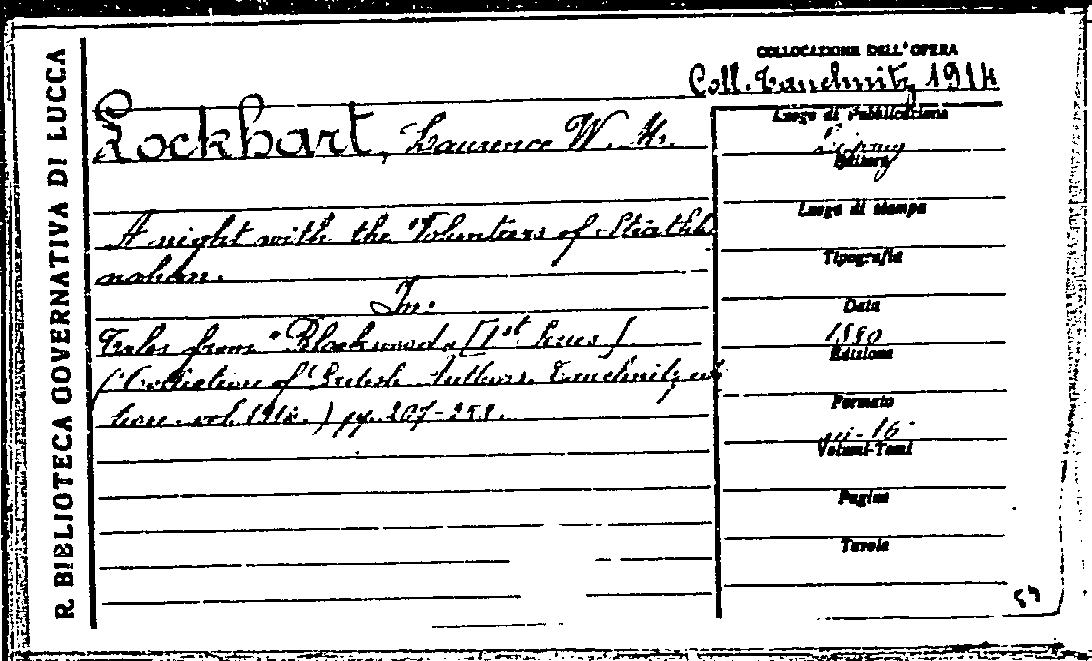 R. BIBLIOTECA GOVERNATIVA DI LUCCA
COLLOCAZIONE DELL'OPERA
Coll. Tauchnitz 1914
Lockhart, Laurence W. M.
A night with the Volunteers of Strathk
nahan.
In:
Tales from "Blackwood" [1st Series]
(Collection of British Authors. Tauchnitz edi
tion. vol. 1914.) pp. 207-
Luogo di Pubblicazione
Lipsia
Editore
Luogo di stampa
Tipografia
Data
1880
Edizione
Formato
in-16°
Volumi-Tomi
Pagine
Tavole